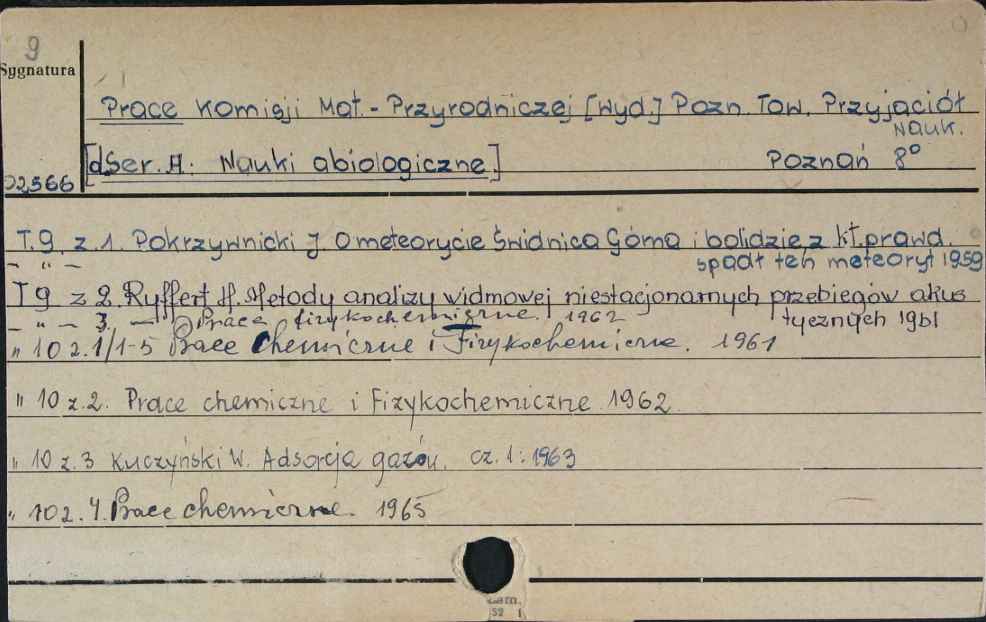 9
Sygnatura
Prace Komisji Mat.- Przyrodniczej [wyd.] Pozn. Tow. Przyjaciół
Nauk.
[dSer. A: Nauki abiologiczne.] Poznań 8°
02566
T. 9. z. 1. Pokrzywnicki J. O meteorycie Świdnica Górna i bolidzie, z kt. prawd.
– " – spadł ten meteoryt 1959
T 9 z 2. Ryffert H. Metody analizy widmowej niestacjonarnych przebiegów akus
– " – 3. — Prace fizykochemiczne. 1962 tycznych 1961
" 10 z. 1/1-5 Prace Chemiczne i Fizykochemiczne. 1961
" 10 z. 2. Prace chemiczne i Fizykochemiczne 1962
" 10 z. 3 Kuczyński W. Adsorcja gazów. cz. 1: 1963
" 10 z. 4. Prace chemiczne. 1965
52 1